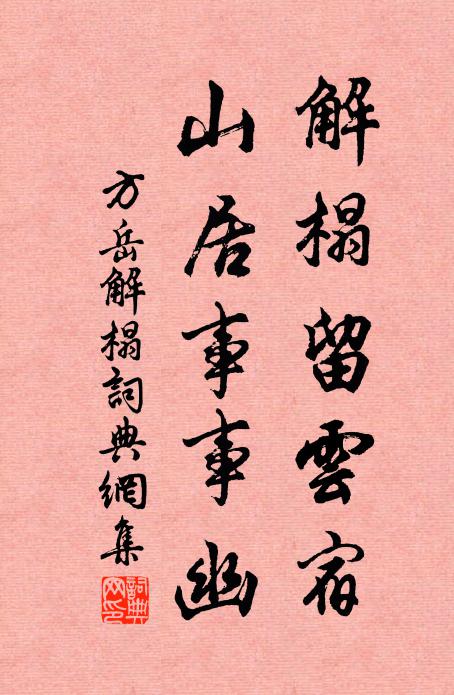 解榻留雲宿
山居事事幽
方岳解榻詞典網集
詞典網印